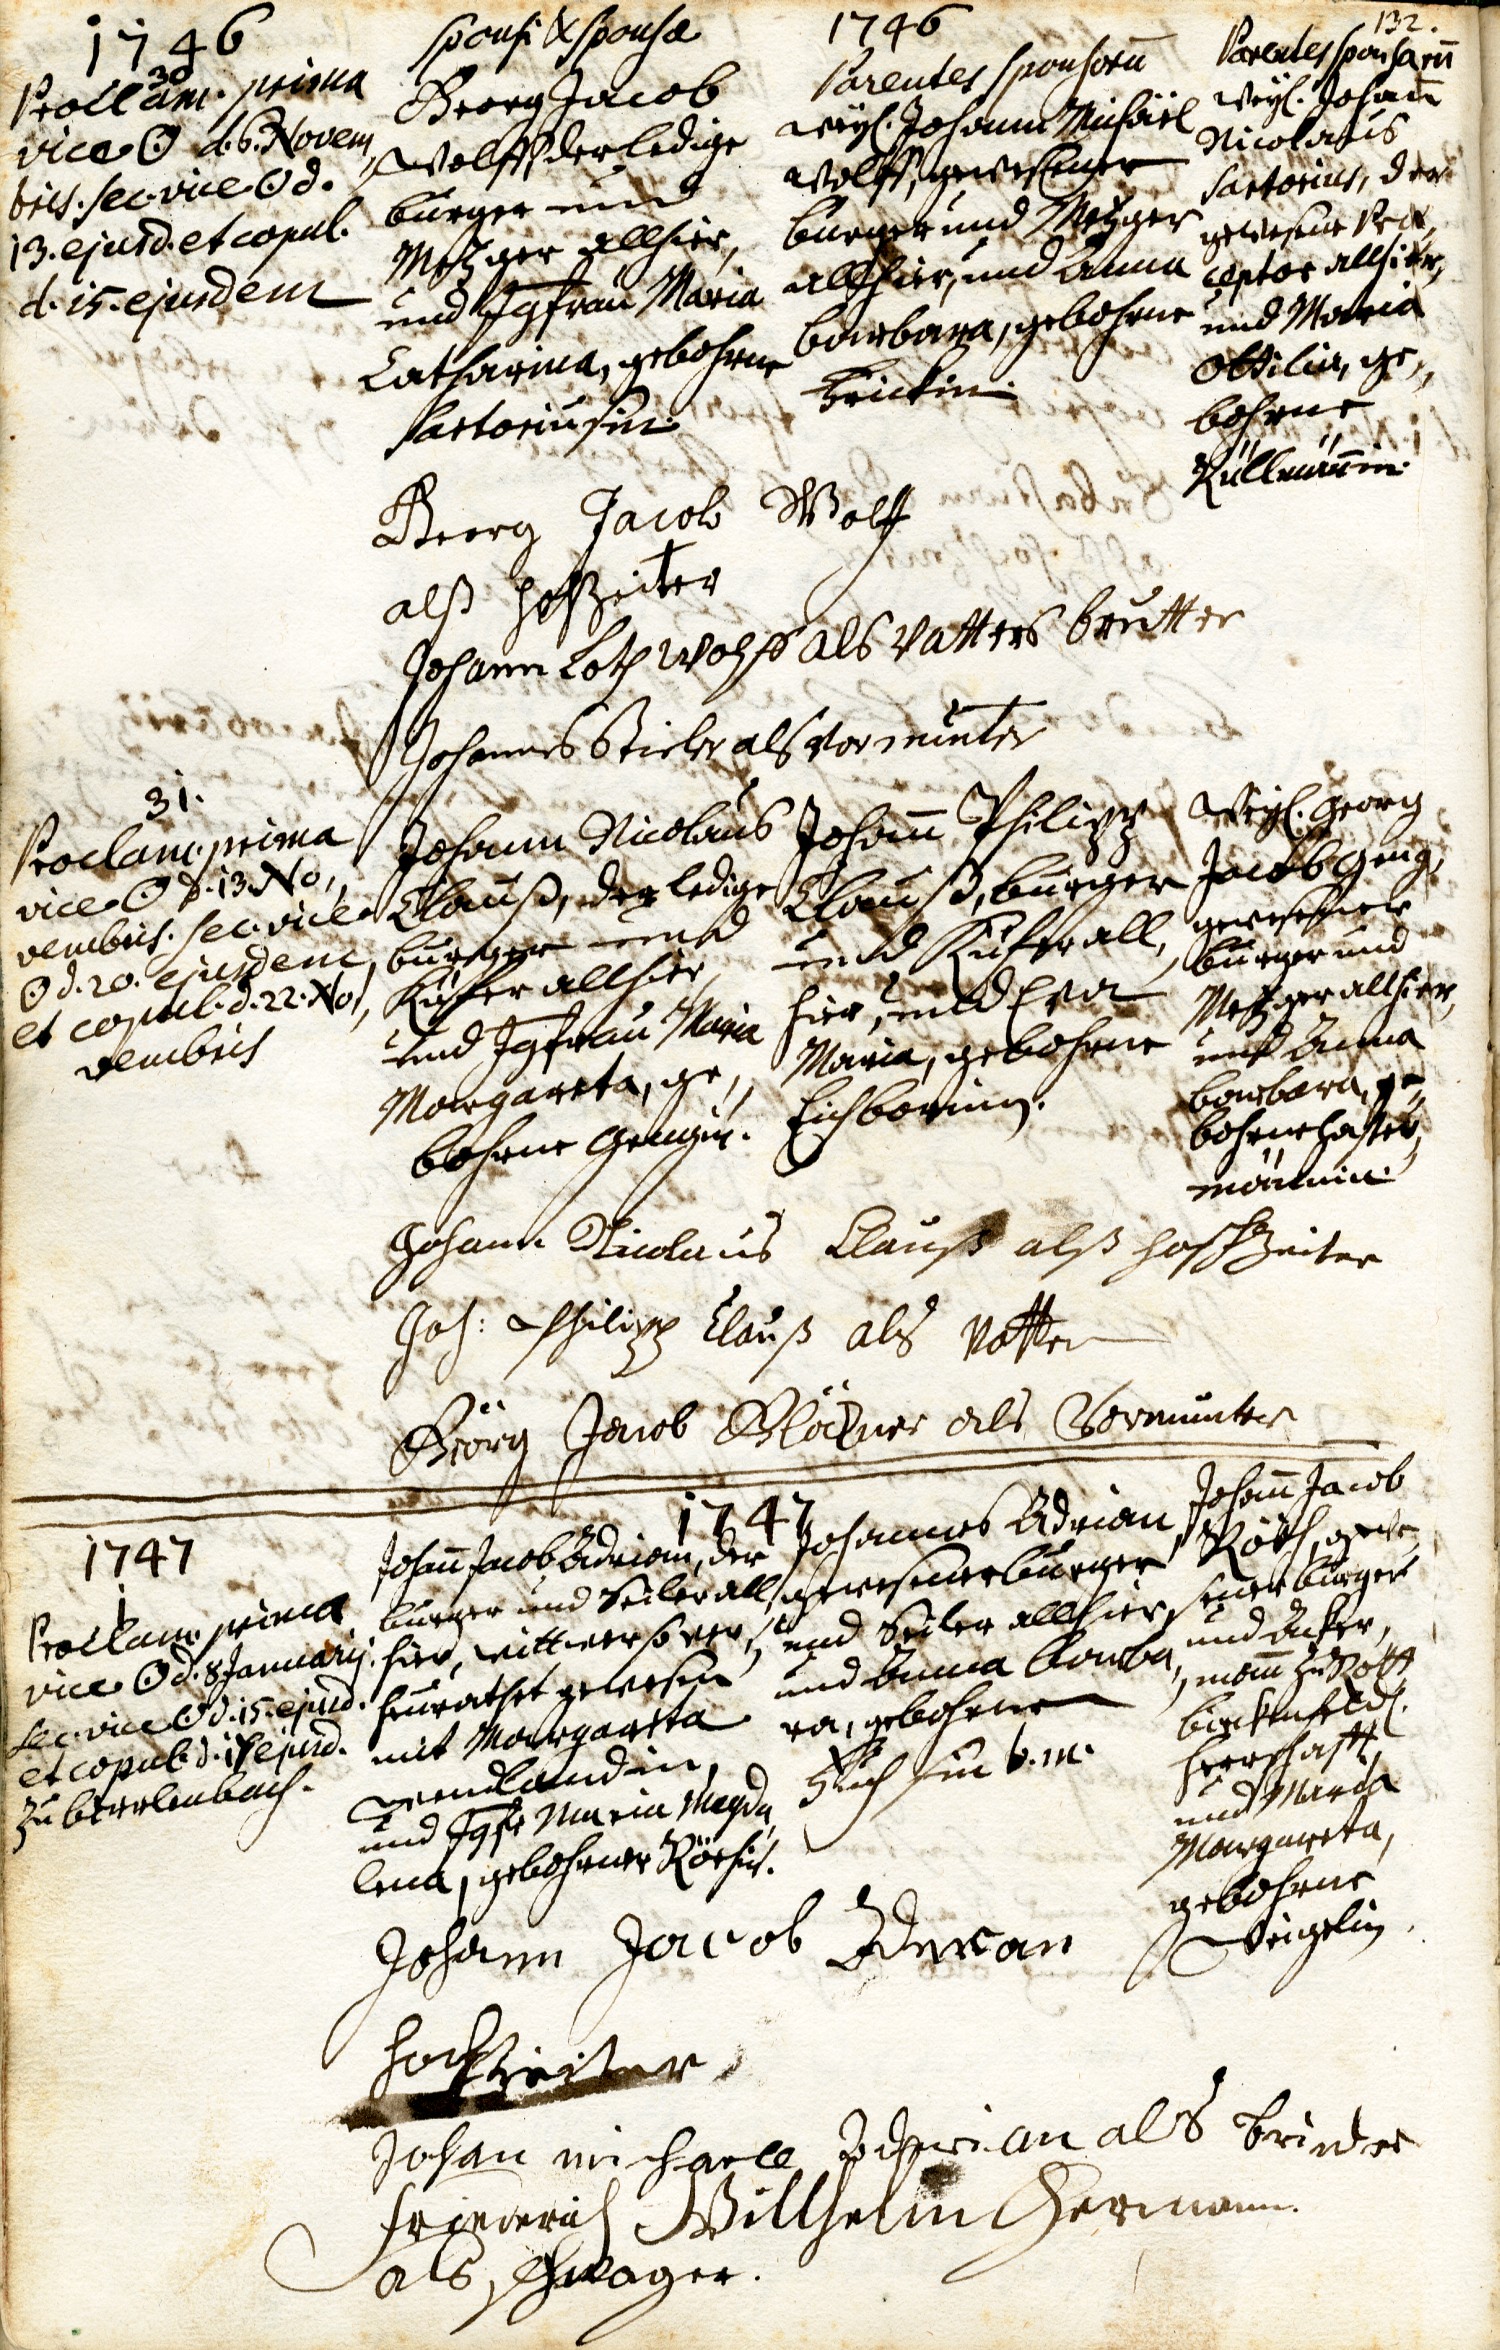 132.
1746
30
Proclam. prima
vice ☉ d. 6. Novem,
bris. sec. vice ☉ d.
13. ejusd. et copul.
d. 15. ejusdem
sponsi & sponsæ
Georg Jacob
Wolff, der ledige
burger und
Metzger allhier,
und Jgfrau Maria
Catharina, gebohrne
Sartoriusin.
1746
Parentes sponsorū
weyl. Johann Michäel
Wolff, gewesener
burger und Metzger
allhier, und Anna
barbara, gebohrne
Parentes sponsarū
weyl. Johañ
Nicolaus
Sartorius, der
gewesene Præ,
ceptor allhier,
und Maria
Ottilia, ge,,
bohrne
Küllmäñin.
Georg Jacob Wolff
alß hochzeiter
Johann Loth Wolff als vatters brutter
Johannes als vormunter
31.
Proclam. prima
vice ☉ d. 13. No,,
vembris. sec. vice
☉ d. 20. ejusdem,
et copul. d. 22. No,
vembris
Johann Nicolaus
Clauß, der ledige
burger und
Küfer allhier,
und Jgfrau Maria
Margareta, ge,,
bohrne Gengin.
Johañ Philipp
Clauß, burger
und Küfer all,
hier, und Eva
Maria, gebohrne
Eichbornin.
Weyl. Georg
Jacob Geng,
gewesener
burger und
Metzger allhier,
und Anna
barbara, ge,,
bohrne
männin.
Johann Nicolaus Clauß alß hochzeiter
Joh: Philipp Clauß als Vatter
Görg Jacob als Vormunter
1747
1
Proclam. prima
vice ☉ d. 8 Januarij.
sec. vice ☉ d. 15. ejusd.
et copul. d. ejusd.
zu
1747
Johañ Jacob Adrian, der
burger und Seiler all,
hier, wittwer so ver,,
heurathet gewesen
mit Margareta
und Jgfr. Maria Magda,
lena, gebohrner Röthin.
Johannes Adrian
gewesener burger
und Seiler allhier,
und Anna barba,,
ra, gebohrne
Johañ Jacob
Röth, gewe,
sener burger
und Acker,
mañ zu Rott
birkenfeld.
herrschafft,
und Maria
Margareta,
gebohrne
Weigelin.
Johann Jacob Aderian
hochzeiter
Johan michaell Adherian als brinder
Friederich Willhelm Hermann.
als schwager.